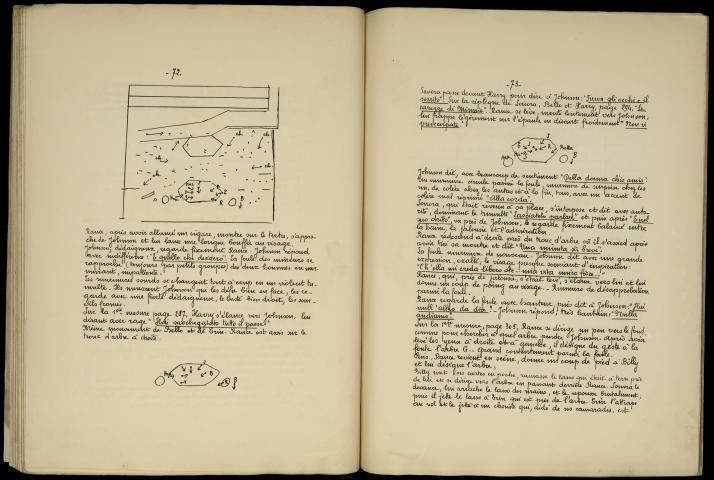 - 72.
Rance, après avoir allumé un cigare, monte sur le tertre, s'appro-
che de Johnson et lui lance une longue bouffée au visage.
Johnson, dédaigneux, regarde fixement Rance. Johnson répond
avec indifférence: "è quello chi desidero". La foule des mineurs se
rapproche (toujours par petits groupes) des deux hommes en mur-
murant, impatiente.
Les murmures sourds se changent tout à coup en un violent tu-
multe. Ils menacent Johnson qui les défie bien en face, les re-
garde avec une fierté dédaigneuse, le buste bien droit, les sour-
cils froncés.
Sur la 1ère mesure page 287, Harry s'élance vers Johnson, lui
disant avec rage
Même mouvement de Bello et de Trin. Rance est assis sur le
tronc d'arbre à droite.
- 73 -
Sonora passe devant Harry pour dire à Johnson: "Fissa gli occhi e il
sorriso"! Sur la réplique de Sonora, Bello et Harry, page 294, "Le
carezze di Minnie" Rance se lève, monte lentement vers Johnson,
lui frappe légèrement sur l'épaule en disant froidement "Non vi
preoccupate".
Bello
Johnson dit, avec beaucoup de sentiment "Della donna ch'io amo".
Un murmure circule parmi la foule, murmure de surprise chez les
uns, de colère chez les autres et à la fin, tous, avec un accent de
colère mal réprimé "Alla corda".
Sonora, qui était revenu à sa place, s'interpose et dit avec auto-
rité, dominant le tumulte "Lasciatelo parlare" et puis après "È nel
suo diritto", va près de Johnson, le regarde fixement balancé entre
la haine, la jalousie et l'admiration.
Rance redescend à droite près du tronc d'arbre où il s'assied après
avoir tiré sa montre et dit "Una minuta sii breve".
La foule murmure de nouveau. Johnson dit avec une grande
expression, exalté, le visage presque souriant d'inspiration:
"Ch'ella mi creda libero etc - mia vita unico fior...!"
Rance, qui, près de Johnson, s'était levé, s'élance vers lui et lui
donne un coup de poing au visage. - Rumeurs de désapprobation
parmi la foule.
Rance regarde la foule avec hauteur, puis dit à Johnson: "Hai
null'altro da dire". - Johnson répond, très hautain: "Nulla
andiamo".
Sur la 1ère mesure, page 305, Rance se dirige un peu vers le fond
comme pour chercher à quel arbre pendre Johnson. Après avoir
levé les yeux à droite et à gauche, il désigne du geste à la
foule l'arbre G. - Grand contentement parmi la foule.
Puis, Rance revient en scène, donne un coup de pied à Billy
et lui désigne l'arbre.
Billy met les cartes en poche, ramasse le lasso qui était à terre près
de lui et se dirige vers l'arbre en passant derrière Rance. Sonora le
devance, lui arrache le lasso des mains, et le repousse brutalement,
puis il jette le lasso à Trin qui est près de l'arbre. Trin l'attrape
au vol et le jette à un choriste qui, aidé de ses camarades, est